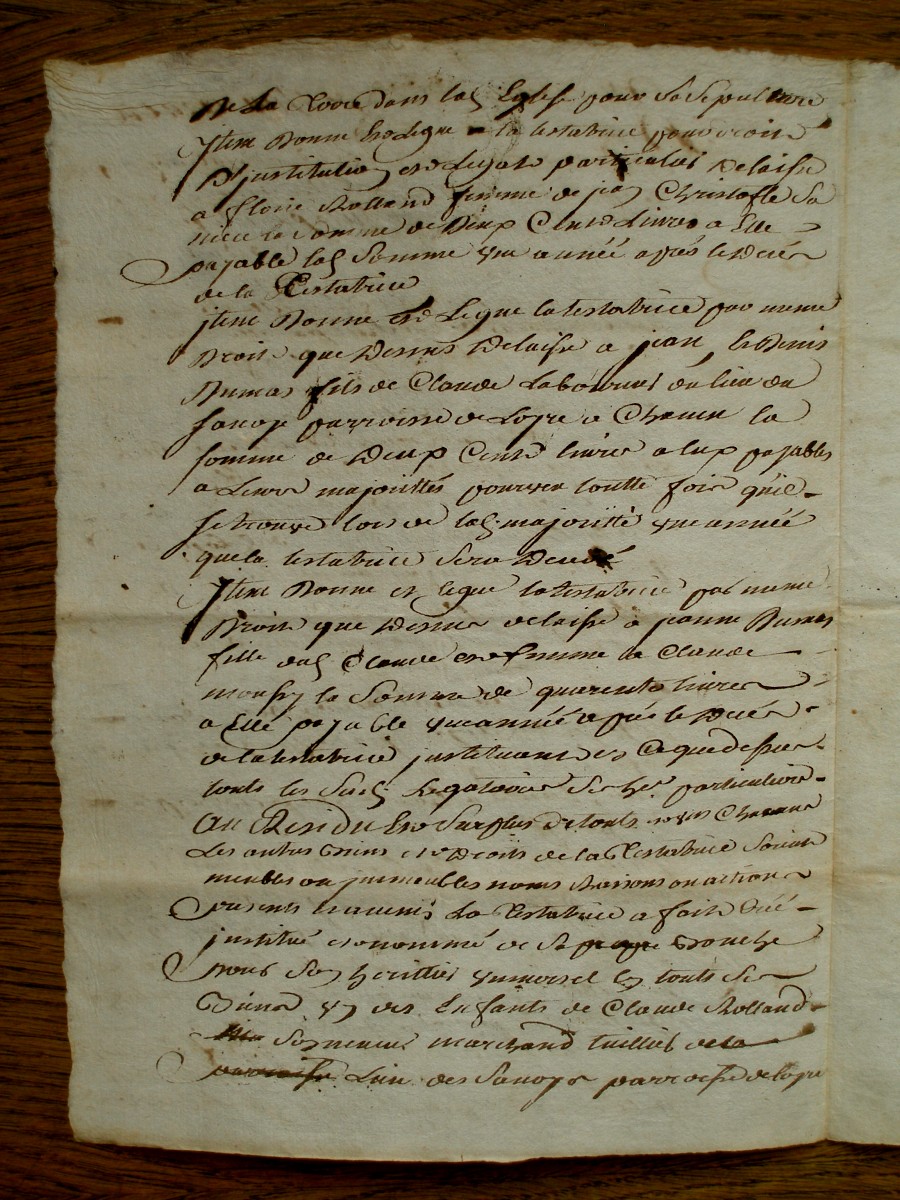 de La dans lad Eglise pour Sa Sepulture
Item Donne et Legue la testatrice pour droit
D'institution et Legat particulier delaisse
a fleurie Rolland femme de jean Christofle Sa
niece la Somme de Deux Cents Livres a Elle
payable lad Somme une année après le Décès
de la Testatrice
item Donne et Legue la testatrice par meme
Droit que Dessus Delaisse a jean, et Denis
Dumas fils de Claude Laboureur du lieu du
parroisse de Loyre a la
somme de Deux Cents livres a Eux payables
a Leurs majorittés pourveu toutte fois qu'il
Se trouve lors de lad. majoritté une année
que la testatrice Sera Decedé
Item Donne et legue la testatrice par meme
Droit que Dessus delaisse a jeanne Dumas
fille dud Claude et femme de Claude
la Somme de quarente livres
a Elle payable une année après le Décès
de la testatrice instituant en Ce que dessus
touts les Susd Legataires Ses hers particuliers
Au Residu et Surplus de touts et uns Chacuns
Les autres Biens et Droits de la Testatrice Soient
meubles ou immeubles noms Raisons ou actions
presents et avenir La Testatrice a fait Créé
institué et nommé de Sa propre Bouche
pour Son herittier universel En touts Ses
Biens un des Enfants de Claude Rolland
marchand tuillier de la
parroisse Lieu des parroisse de Loyre